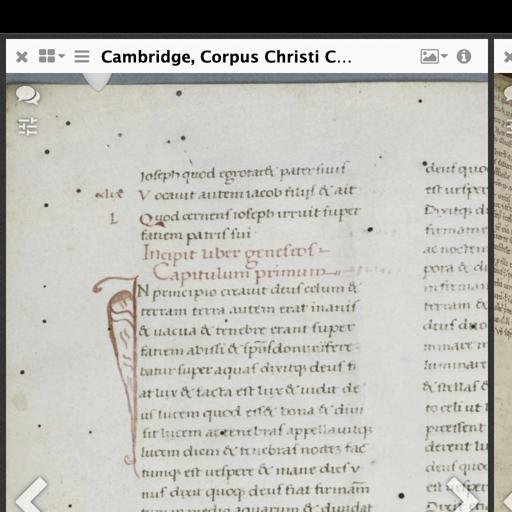 Cambridge, Corpus Christi C...
Ioseph quod egrotaret pater suus
xlix Vocavit autem iacob filios & ait
L Quod cernens ioseph irruit super
faciem patris sui
Incipit liber geneseos
Capitulum primum
IN principio creavit deus celum &
terram terra autem erat inanis
& vacua & tenebre erant super
faciem abissi & sp̄s dom ferebatur super aquas dixitq; deus fi
at lux & facta est lux & vidit de
us lucem quod ess& bona & divi
sit lucem ac tenebras appellavitq;
lucem diem & tenebras noctē fac
tumq; est vespere & mane dies v
nus dixit quoq; deus fiat firmam̄
tum in medio aquarum & dividat
deus quo
est vesper
Dixitq; d
firmame
ac noctem
pora & di
in firmam
terram &
deus duo
luminare
& stellas &
to celi ut
preessent
deus quoq
est vespere